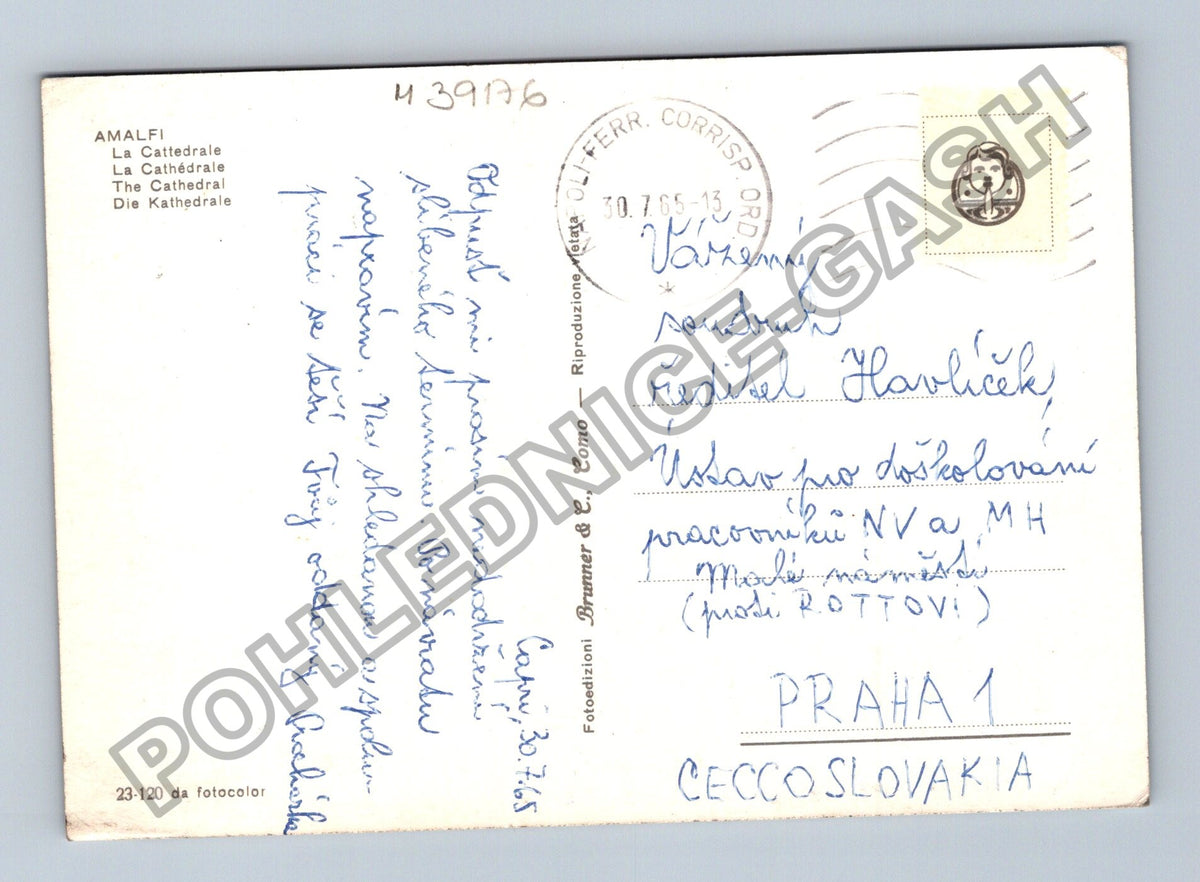 M 39176
AMALFI
La Cattedrale
La Cathédrale
The Cathedral
Die Kathedrale
NAPOLI-FERR. CORRISP. ORD.
30.7.65-13
Capri, 30.7.65
Odpusť mi prosím nedodržení
slíbeného termínu. Po návratu
napravím. Na shledanou a spolu-
práci se těší Tvůj oddaný
Fotoedizioni Brunner & C., Como — Riproduzione vietata
Vážený
soudruh
ředitel Havlíček,
Ústav pro doškolování
pracovníků NV a MH
Malé náměstí
(proti ROTTOVI)
PRAHA 1
CECCOSLOVAKIA
23-120 da fotocolor
POHLEDNICE-GASH